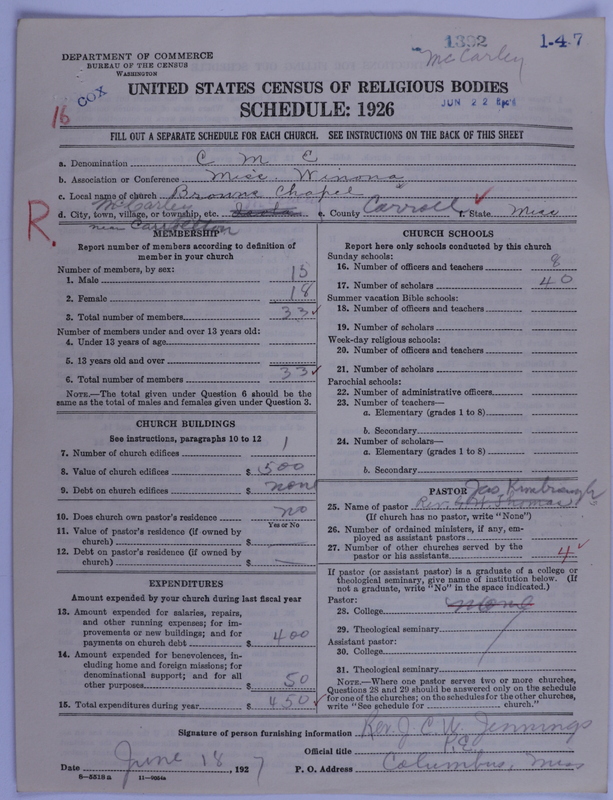 1392
1-4-7
McCarley
DEPARTMENT OF COMMERCE
BUREAU OF THE CENSUS
WASHINGTON
COX
16
UNITED STATES CENSUS OF RELIGIOUS BODIES
SCHEDULE: 1926
JUN 22
FILL OUT A SEPARATE SCHEDULE FOR EACH CHURCH. SEE INSTRUCTIONS ON THE BACK OF THIS SHEET
a. Denomination C M E
b. Association or Conference Miss. Winona
c. Local name of church Browns Chapel
d. City, town, village, or township, etc. McCarley e. County Carroll f. State Miss
near Carrollton
R.
MEMBERSHIP
Report number of members according to definition of
member in your church
Number of members, by sex:
1. Male 15
2. Female 18
3. Total number of members 33
Number of members under and over 13 years old:
4. Under 13 years of age
5. 13 years old and over
6. Total number of members 33
NOTE.—The total given under Question 6 should be the
same as the total of males and females given under Question 3.
CHURCH BUILDINGS
See instructions, paragraphs 10 to 12
7. Number of church edifices 1
8. Value of church edifices $ 500
9. Debt on church edifices $ none
10. Does church own pastor's residence no
Yes or No
11. Value of pastor's residence (if owned by
church) $
12. Debt on pastor's residence (if owned by
church) $
EXPENDITURES
Amount expended by your church during last fiscal year
13. Amount expended for salaries, repairs,
and other running expenses; for im-
provements or new buildings; and for
payments on church debt $ 400
14. Amount expended for benevolences, in-
cluding home and foreign missions; for
denominational support; and for all
other purposes $ 50
15. Total expenditures during year $ 450
CHURCH SCHOOLS
Report here only schools conducted by this church
Sunday schools:
16. Number of officers and teachers 8
17. Number of scholars 40
Summer vacation Bible schools:
18. Number of officers and teachers
19. Number of scholars
Week-day religious schools:
20. Number of officers and teachers
21. Number of scholars
Parochial schools:
22. Number of administrative officers
23. Number of teachers—
a. Elementary (grades 1 to 8)
b. Secondary
24. Number of scholars—
a. Elementary (grades 1 to 8)
b. Secondary
PASTOR Jas. Kimbrough
25. Name of pastor Rev. Thomas
(If church has no pastor, write "None")
26. Number of ordained ministers, if any, em-
ployed as assistant pastors
27. Number of other churches served by the
pastor or his assistants 4
If pastor (or assistant pastor) is a graduate of a college or
theological seminary, give name of institution below. (If
not a graduate, write "No" in the space indicated.)
Pastor:
28. College none
29. Theological seminary
Assistant pastor:
30. College
31. Theological seminary
NOTE.—Where one pastor serves two or more churches,
Questions 28 and 29 should be answered only on the schedule
for one of the churches; on the schedules for the other churches,
write "See schedule for church."
Signature of person furnishing information Rev. J. C. W. Jennings
Official title P.E.
Date June 18, 1927 P. O. Address Columbus, Miss
8-5518 a 11-9054a